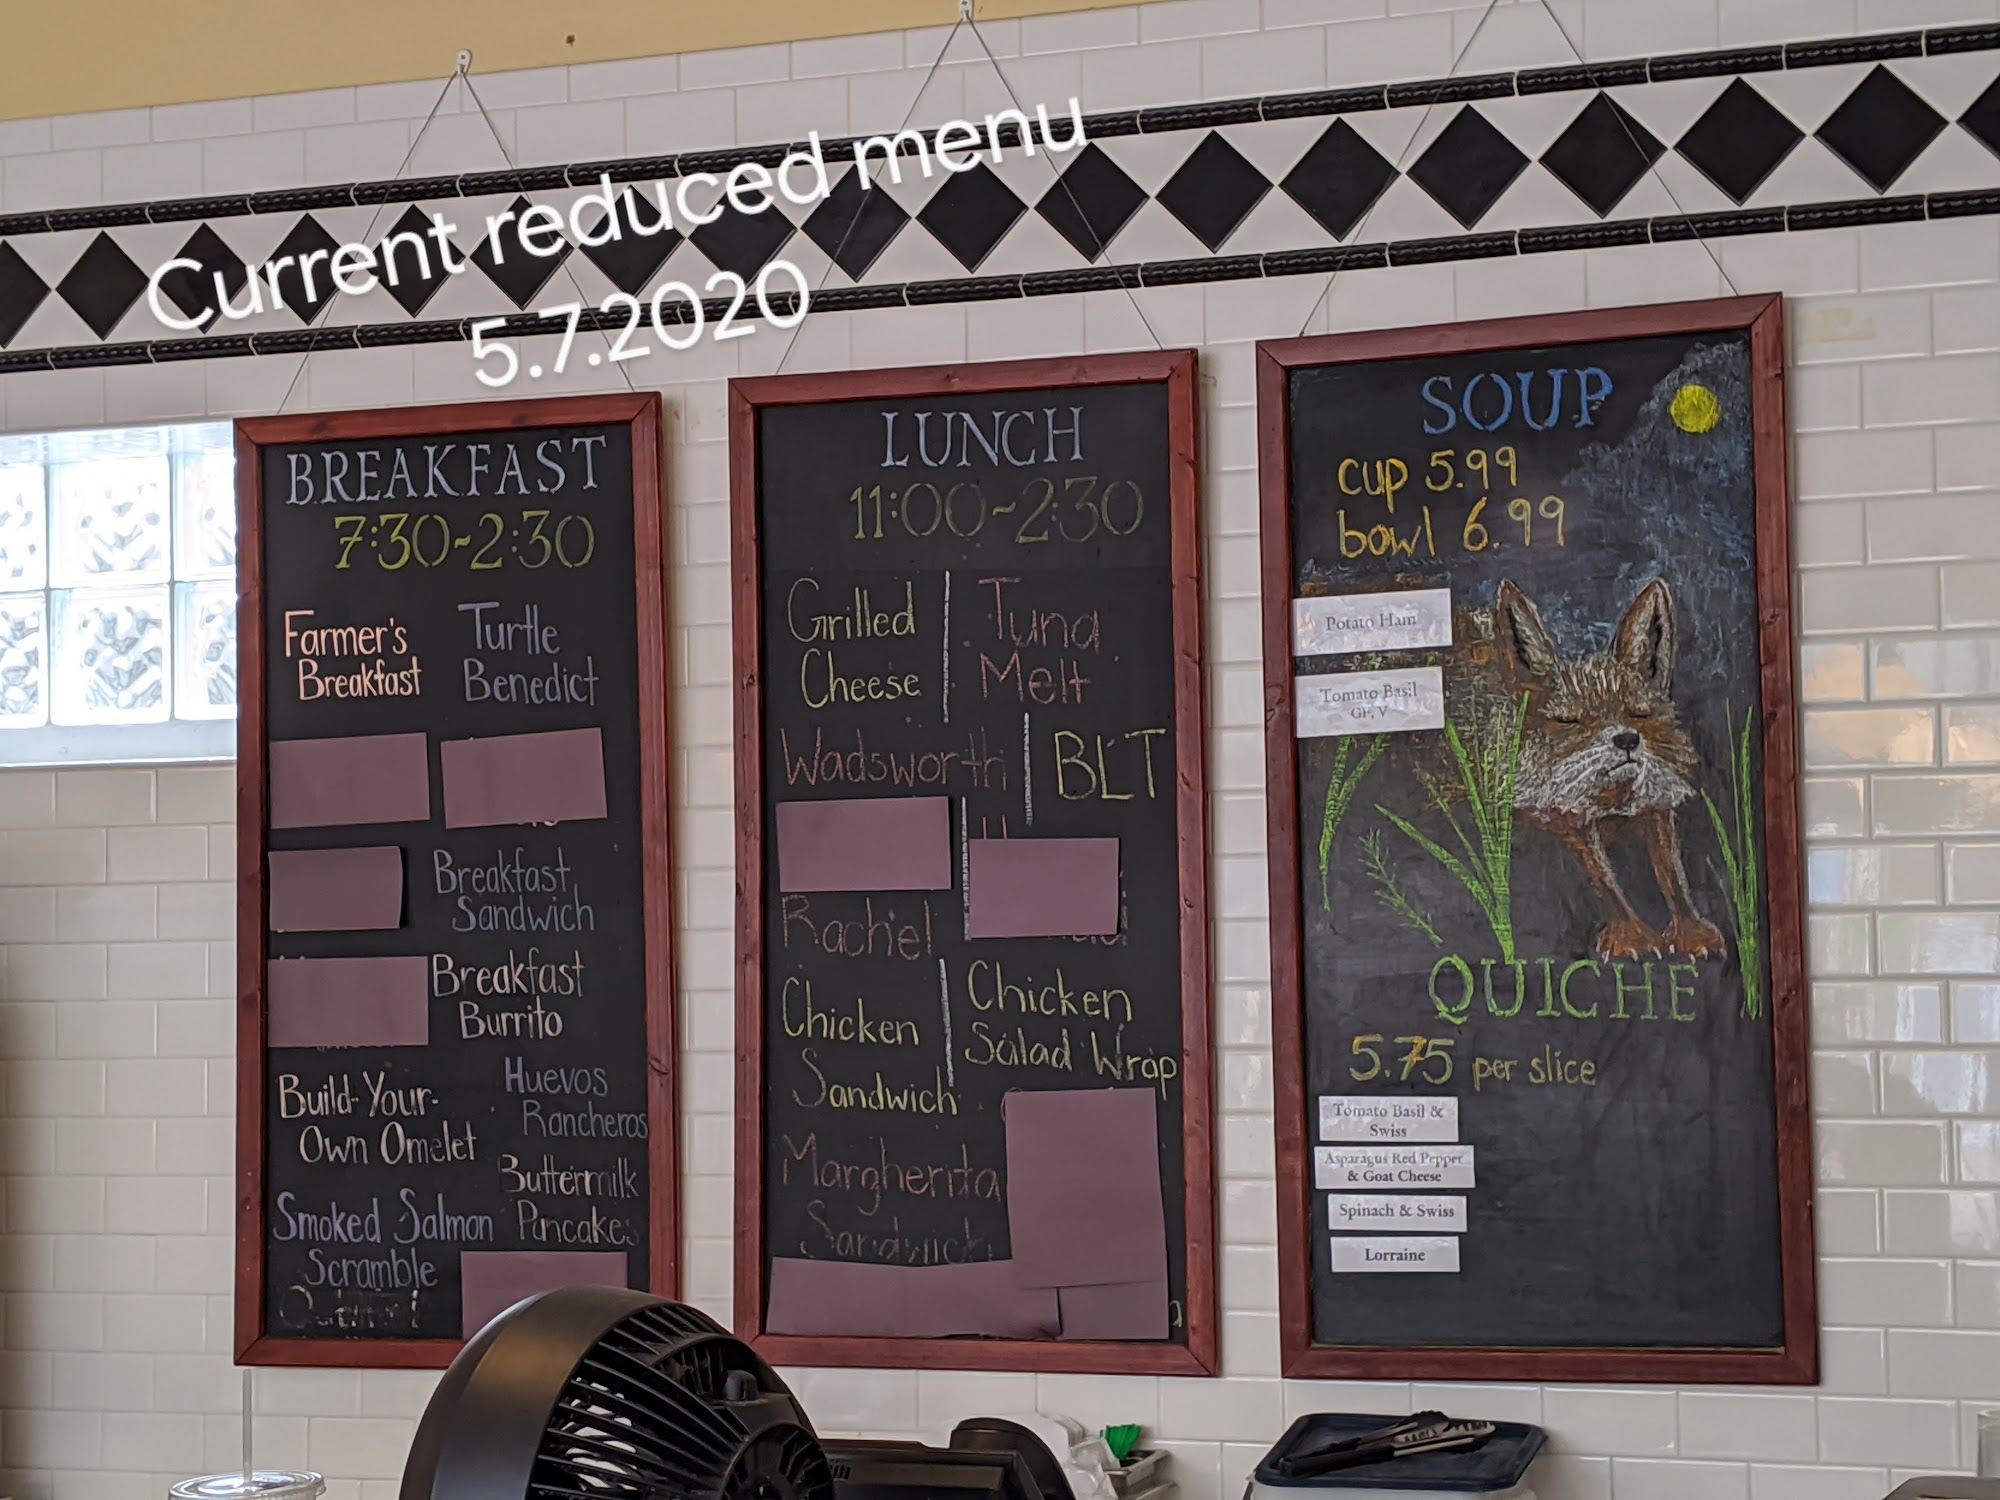 Current reduced menu
5.7.2020
BREAKFAST
7:30-2:30
Farmer's
Breakfast
Turtle
Benedict
Breakfast
Sandwich
Breakfast
Burrito
Build-Your-
Own Omelet
Huevos
Rancheros
Smoked Salmon
Scramble
Buttermilk
Pancakes
LUNCH
11:00-2:30
Grilled
Cheese
Tuna
Melt
Wadsworth
BLT
Rachel
Chicken
Sandwich
Chicken
Salad Wrap
Margherita
Sandwich
SOUP
cup 5.99
bowl 6.99
Potato Ham
Tomato Basil
GF, V
QUICHE
5.75 per slice
Tomato Basil &
Swiss
Asparagus Red Pepper
& Goat Cheese
Spinach & Swiss
Lorraine